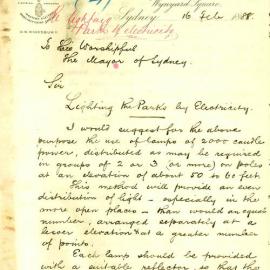 Wynyard Square,
Sydney 16 Feb 1888.
Lighting
Parks by Electricity.
To His Worshipful
The Mayor of Sydney.
Sir
Lighting the Parks by Electricity.
I would suggest for the above
purpose the use of lamps of 2000 candle
power, distributed as may be required
in groups of 2 or 3 (or more) on poles
at an elevation of about 50 to 60 feet.
This method will provide an even
distribution of light - especially in the
more open places - than would an equal
number, arranged separately at a
lesser elevation & at a greater number
of points.
Each lamp should be provided
with a suitable reflector, so that the